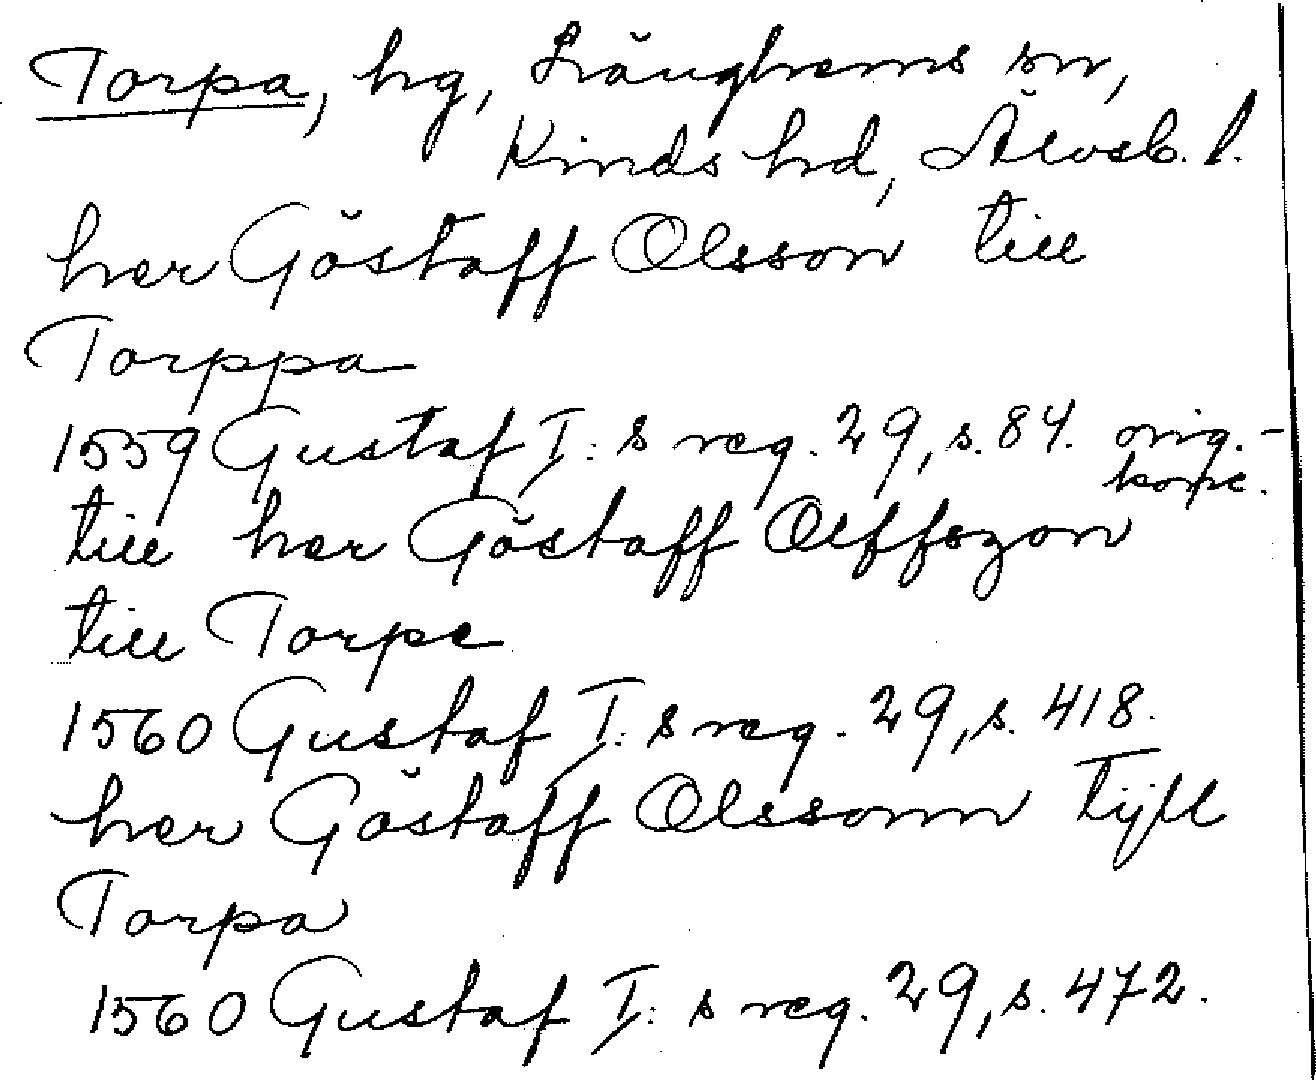 Torpa, hg, Länghems sn,
Kinds hd, Älvsb. l.
her Göstaff Olsson till
Torppa
1559 Gustaf I:s reg. 29, s. 84. orig.-
konc.
till her Göstaff Olffszon
till Torpe
1560 Gustaf I:s reg. 29, s. 418.
her Göstaff Olssonn tijll
Torpa
1560 Gustaf I:s reg. 29, s. 472.